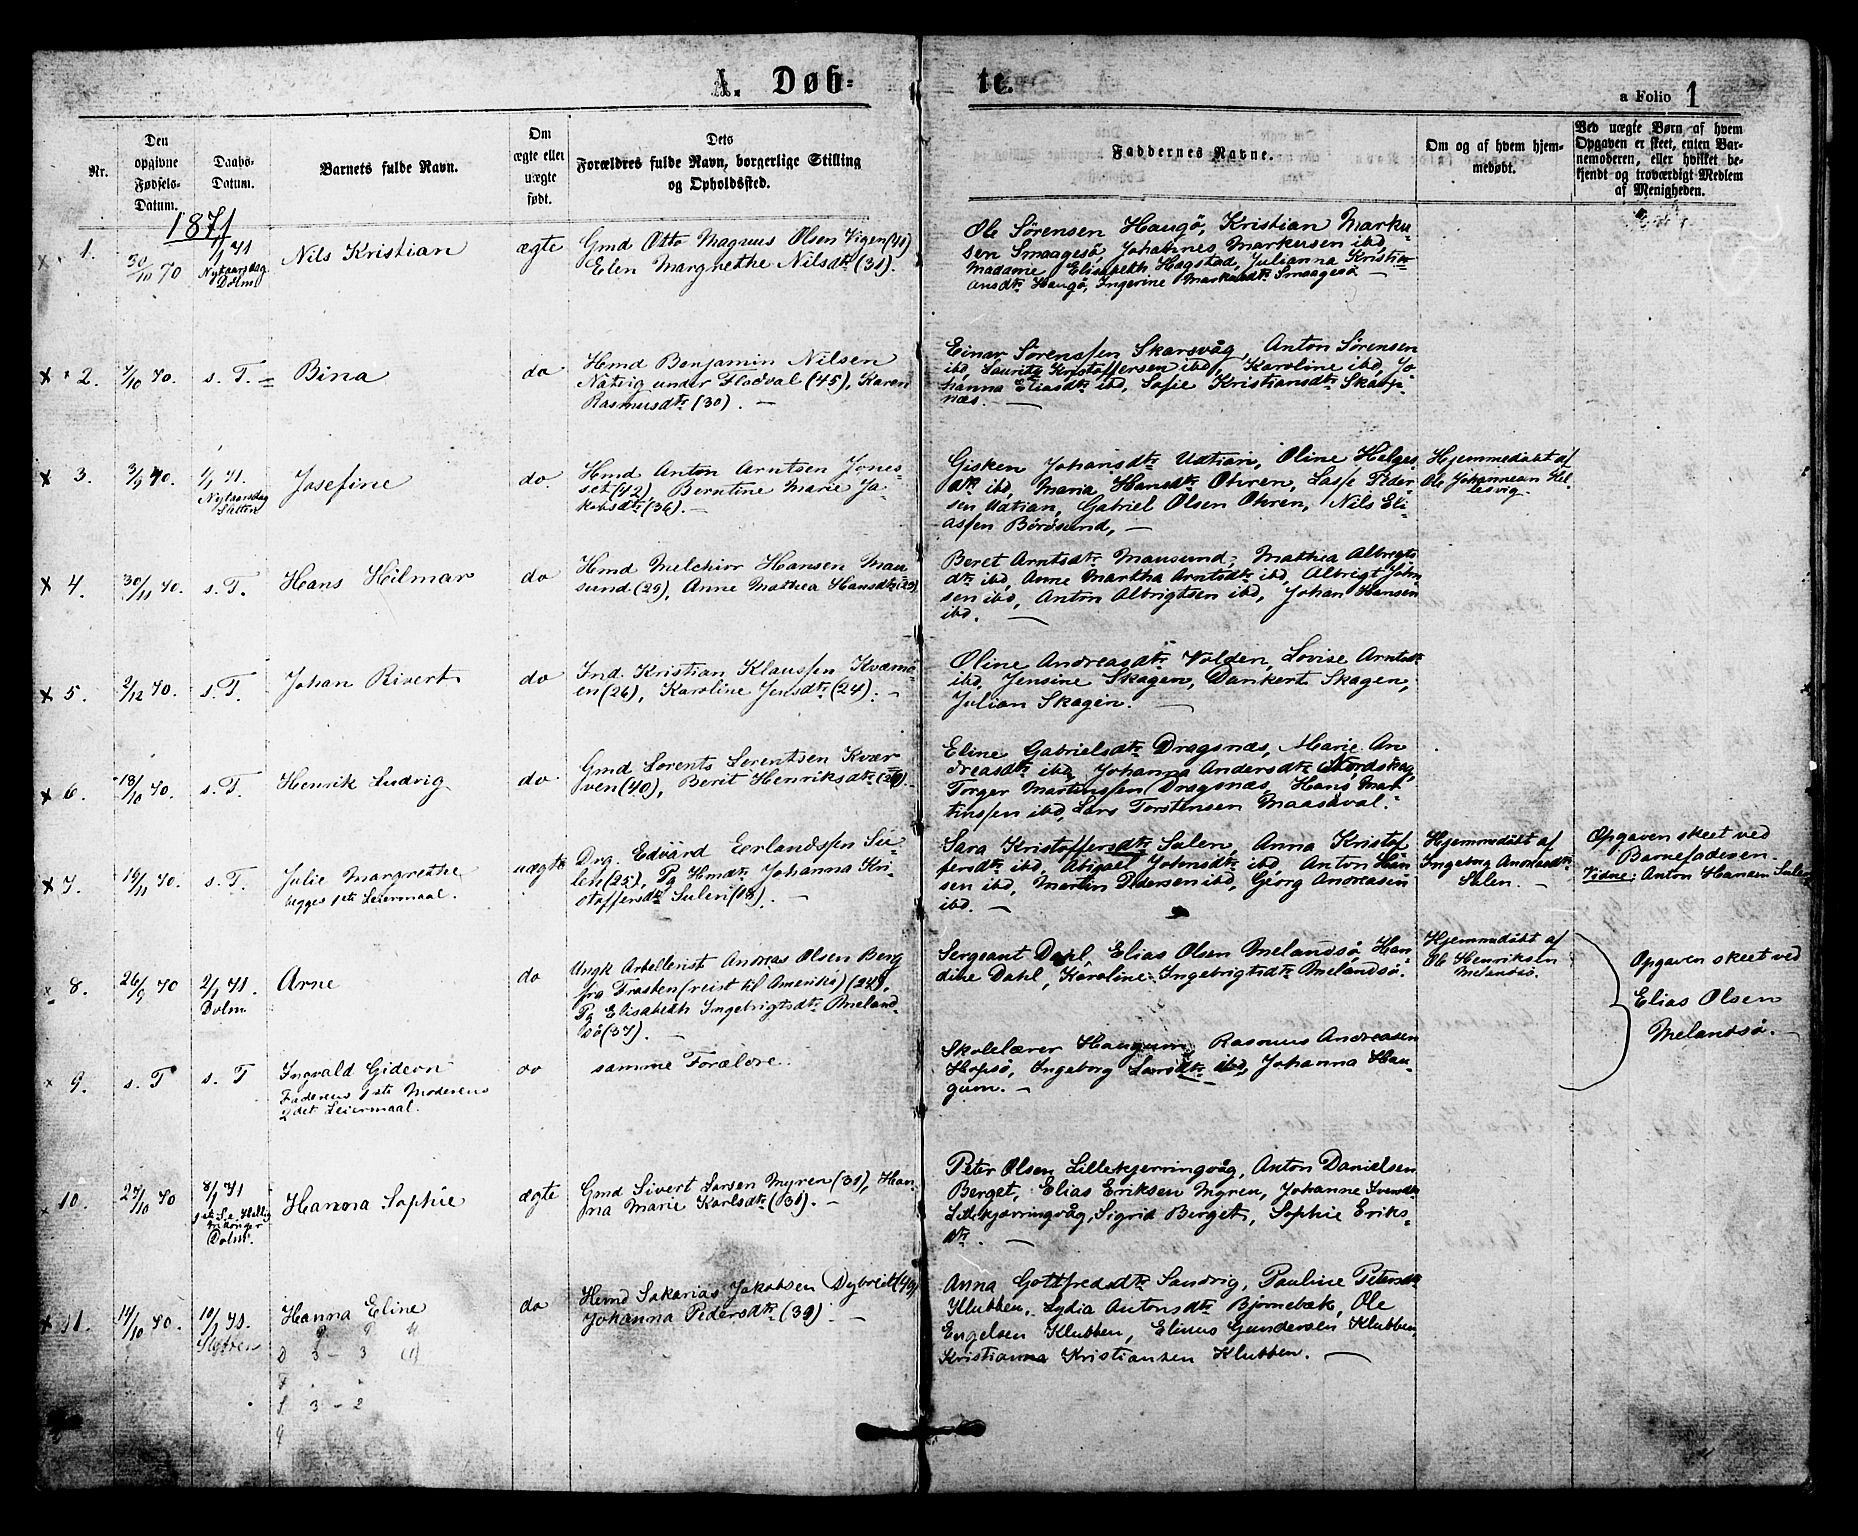 A. Døb-
te.
a Folio 1
Nr.
Den opgivne Fødsels-Datum.
Daabs-Datum.
Barnets fulde Navn.
Om ægte eller uægte født.
Dets Forældres fulde Navn, borgerlige Stilling og Opholdssted.
Faddernes Navne.
Om og af hvem hjemmedøbt.
Ved uægte Børn af hvem Opgaven er skeet, enten Barnemoderen, eller hvilket bekjendt og troværdigt Medlem af Menigheden.
1871
1. 30/10 70 1/1 71 Nytaarsdag Dolm
Nils Kristian
ægte
Gmd Otto Magnus Olsen Vigen
Elen Margrethe Nilsdtr (31).
Ole Sørensen Haugø, Kristian Marku-
sen Smaagesø, Johannes Markusen ibd,
Madame Elisabeth Hagstad, Julianna Kristi-
ansdtr Haugø, Ingerine Markusdtr Smaagesø —
2. 7/10 70. s. T. Bina
do
Hmd Benjamin Nilsen
Natvig under Flodval (45), Karen
Rasmusdtr (30). —
Einar Sørenssen Skarsvåg, Anton Sørensen
ibd, Laurits Kristoffersen ibd, Karoline ibd, Jo-
hanna Eliasdtr ibd, Sofie Kristiansdtr
næs. —
3. 3/9 70. 1/1 71. Nytaarsdag Sletten
Josefine
do.
Hmd Anton Arntsen Jones-
set (42), Berntine Marie Ja-
kobsdtr (36). —
Gisken Johansdtr Udtian, Oline Helges
dtr ibd, Maria Hansdtr Ohren, Lasse Peder-
sen Udtian, Gabriel Olsen Ohren, Nils Eli-
assen Børøsund, —
Hjemmedøbt af
Ole Johannesen Hel-
lesvig.
4. 30/11 70. s. T.
Hans Hilmar
do
Hmd Melchior Hansen Mau
sund (25), Anne Mathea Hansdtr
Beret Arntsdtr Mausund, Mathea Albregts
dtr ibd, Anne Martha Arntsdtr ibd, Albrigt John
sen ibd, Anton Albrigtsen ibd, Johan Hansen
ibd. —
5. 2/12 70. s. T.
Johan Rivert
do
Ind. Kristian Klaussen Kværnø
en (26), Karoline Jensdtr (24). —
Oline Andreasdtr Volden, Lovise Arntsdtr
ibd, Jensine Skagen, Dankert Skagen,
Julian Skagen. —
6. 18/10 70. s. T.
Henrik Ludvig
do.
Gmd Lorents Lorentsen Kvær
ven (40), Berit Henriksdtr
Eline Gabrielsdtr Dragsnæs, Marie An
dreasdtr ibd, Johanna Andersdtr Nordskag,
Torger Martinssen Dragsnæs, Hans Mar
tinssen ibd, Lars Torstensen Maasøval.
7. 19/11 70. s. T.
Julie Margrethe
begges 1ste Leiermaal.
uægte
Drg. Edvard Erlandssen Su-
len (25), Pg Hmdtr Johanna Kri-
stoffersdtr Sulen (18). —
Sara Kristoffersdtr Sulen, Anna Kristof
fersdtr ibd, Abigael Johnsdtr ibd, Anton Han
sen ibd, Martin Pedersen ibd, Georg Andreasen
ibd. —
Hjemmedøbt af
Ingeborg Andreasdtr
Sulen. —
Opgaven skeet ved
Barnefaderen.
Vidne: Anton Hansen Sulen
8. 26/9 70 2/1 71. Dolm
Arne
do
Ungk Artillerist Andreas Olsen Berg
fra Frosten (reist til Amerika) (24),
Pg Elisabeth Ingebrigtsdtr Meland
sø (37). —
Sergeant Dahl, Elias Olsen Melandsø, Han-
dike Dahl, Karoline Ingebrigtsdtr Melandsø.
Hjemmedøbt af
Ole Henriksen
Melandsø.
Opgaven skeet ved
Elias Olsen
Melandsø. —
9. s. T s. T
Ingvald Gideon
Faderens 1ste Moderens
2det Leiermaal.
do
samme Forældre.
Skolelærer Haugum, Rasmus Andreasen
Hopsø, Ingeborg Larsdtr ibd, Johanna Hau-
gum. —
10. 27/10 70 8/1 71 1ste S. e. Hellig tre Konger Dolm.
Hanna Sophie
ægte
Gmd Sivert Larsen Myren (31), Han
na Marie Karlsdtr (31). —
Peter Olsen Lillekjerringvåg, Anton Danielsen
Berget, Elias Eriksen Myren, Johanne Svensdtr
Lillekjærringvåg, Sigrid Berget, Sophie Eriks-
dtr. —
11. 14/10 70. 10/1 71. Sletten
Hanna Eline
do
Hmd Sakarias Jakobsen Dybvedt
Johanna Pedersdtr (39). —
Anna Gottfredsdtr Sandvig, Pauline Petersdtr
Klubben, Lydia Antonsdtr Bjørnebæk, Ole
Engelsen Klubben, Elinus Gundersen Klubben,
Kristianna Kristiansen Klubben. —
D 3 - 3 (1)
S 3 - 2